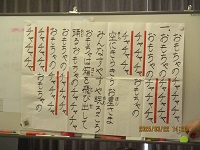 一、おもちゃのチャチャチャ
おもちゃのチャチャチャ
チャチャチャおもちゃの
チャチャチャ
空にきらきらお星さま
みんなすやすや眠るころ
おもちゃは箱を飛び出して
踊るおもちゃのチャチャチャ
おもちゃのチャチャチャ
チャチャチャおもちゃの
チャチャチャ